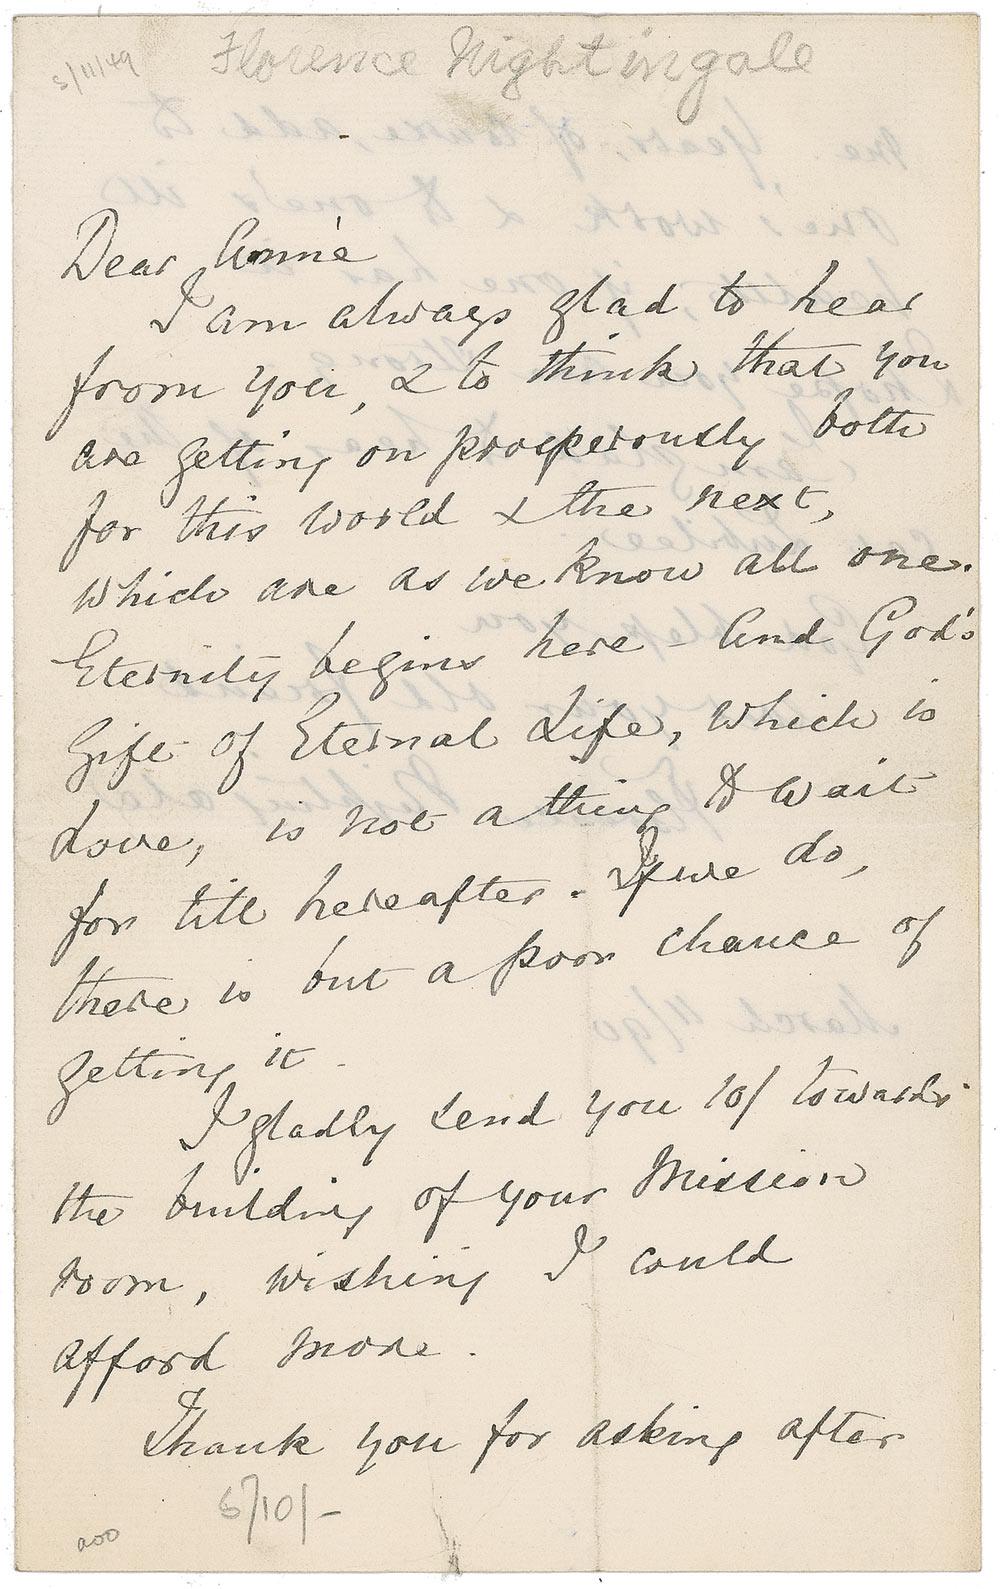 3/11/49
Florence Nightingale
Dear Annie
I am always glad to hear
from you, & to think that you
are getting on prosperously both
for this world & the next,
which are as we know all one.
Eternity begins here - And God's
Gift of Eternal Life, which is
Love, is not a thing to wait
for till hereafter. If we do,
there is but a poor chance of
getting it.
I gladly send you 10/ towards
the building of your Mission
room, wishing I could
afford more.
Thank you for asking after
6/10/-